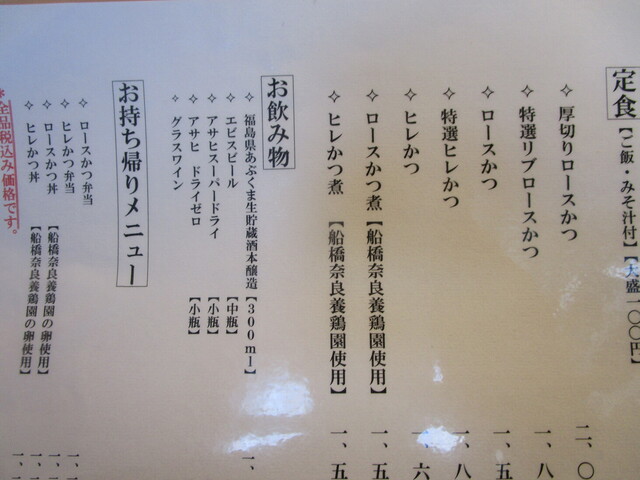 定食【ご飯・みそ汁付】【大盛一〇〇円】
✧ 厚切りロースかつ 二、〇
✧ 特選リブロースかつ 一、八
✧ ロースかつ 一、五
✧ 特選ヒレかつ 一、八
✧ ヒレかつ 一、六
✧ ロースかつ煮【船橋奈良養鶏園使用】 一、五
✧ ヒレかつ煮【船橋奈良養鶏園使用】 一、五
お飲み物
✧ 福島県あぶくま生貯蔵酒本醸造【300ml】 一、
✧ エビスビール【中瓶】
✧ アサヒスーパードライ【小瓶】
✧ アサヒ ドライゼロ【小瓶】
✧ グラスワイン
お持ち帰りメニュー
✧ ロースかつ弁当 一、
✧ ヒレかつ弁当 一、
✧ ロースかつ丼【船橋奈良養鶏園の卵使用】 一、
✧ ヒレかつ丼【船橋奈良養鶏園の卵使用】 一、
*全品税込み価格です。